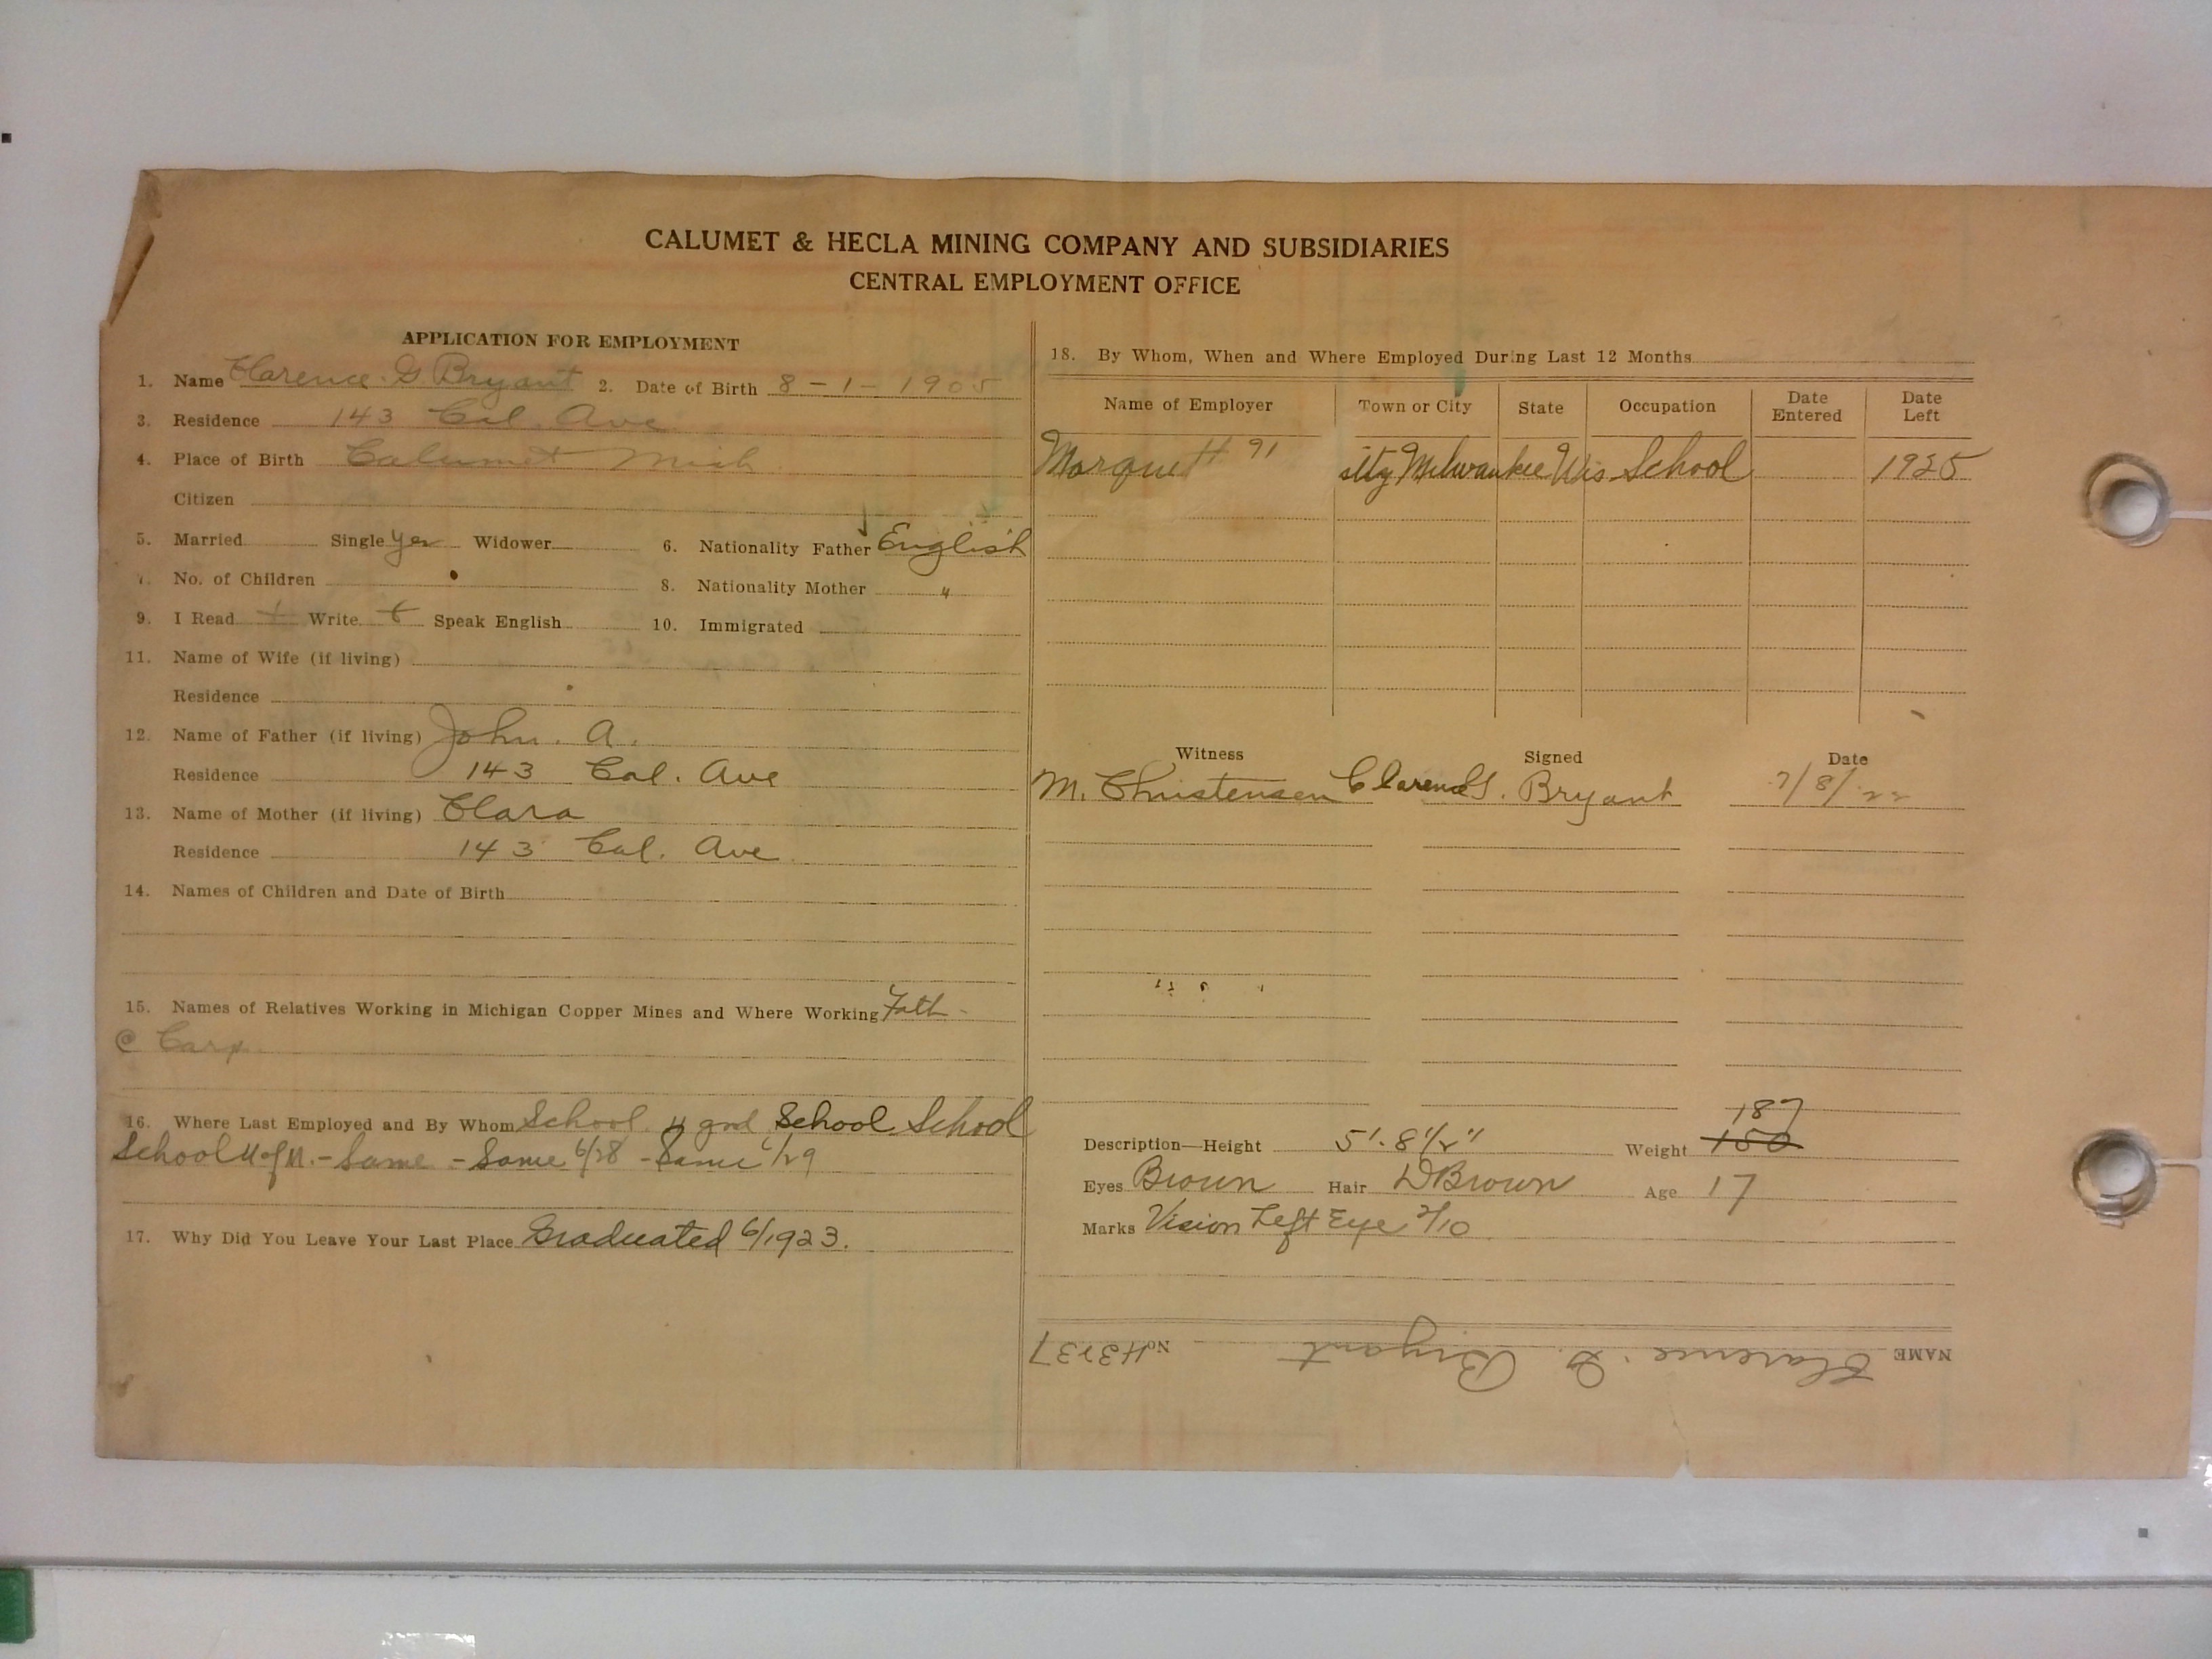 CALUMET & HECLA MINING COMPANY AND SUBSIDIARIES
CENTRAL EMPLOYMENT OFFICE
APPLICATION FOR EMPLOYMENT
1. Name Clarence. G. Bryant 2. Date of Birth 8-1-1905
3. Residence 143 Cal. Ave.
4. Place of Birth Calumet Mich
Citizen
5. Married Single yes Widower 6. Nationality Father English
7. No. of Children 8. Nationality Mother "
9. I Read + Write + Speak English 10. Immigrated
11. Name of Wife (if living)
Residence
12. Name of Father (if living) John. A.
Residence 143 Cal. Ave
13. Name of Mother (if living) Clara
Residence 143 Cal. Ave.
14. Names of Children and Date of Birth
15. Names of Relatives Working in Michigan Copper Mines and Where Working Fath-
@ Carp.
16. Where Last Employed and By Whom School. School School
School U of M. - Same - Same 6/28 - Same 6/29
17. Why Did You Leave Your Last Place Graduated 6/1923.
18. By Whom, When and Where Employed During Last 12 Months
Name of Employer Town or City State Occupation Date Entered Date Left
Marquett Milwaukee Wis School 1925
Witness Signed Date
M. Christensen Clarence G. Bryant 7/8/22
187
Description—Height 5'. 8 1/2" Weight 150
Eyes Brown Hair D Brown Age 17
Marks Vision Left Eye 2/10
NAME Clarence. G. Bryant No. H3237